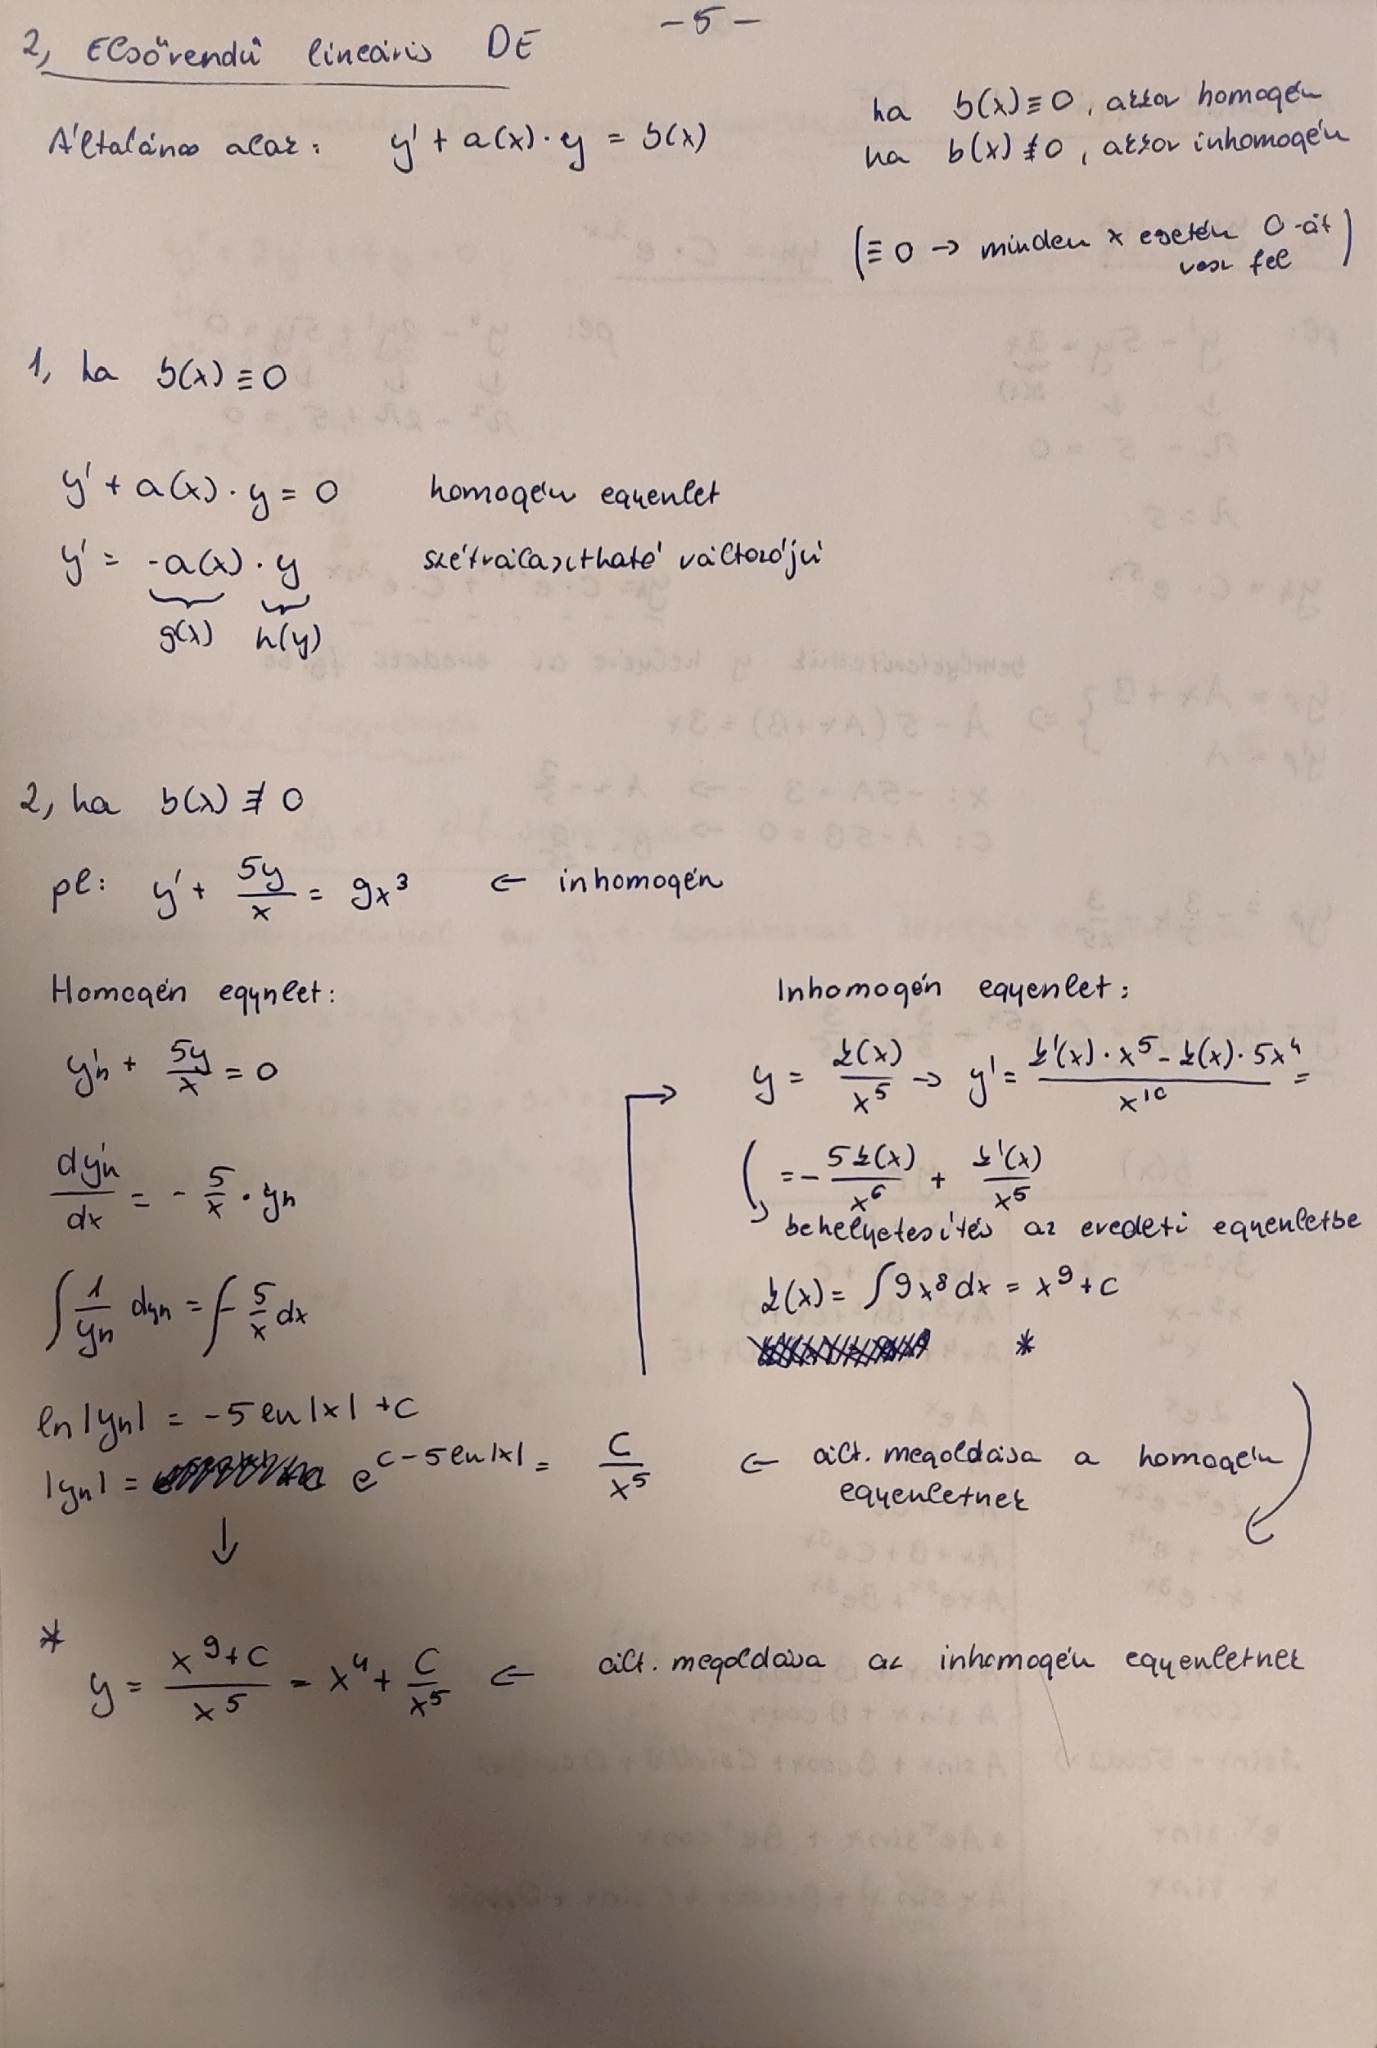 - 5 -
2, Elsőrendű lineáris DE
Általános alak: y' + a(x)·y = b(x)
ha b(x) ≡ 0, akkor homogén
ha b(x) ≢ 0, akkor inhomogén
(≡ 0 → minden x esetén 0-át
vesz fel)
1, ha b(x) ≡ 0
y' + a(x)·y = 0 homogén egyenlet
y' = -a(x)·y szétválasztható változójú
g(x) h(y)
2, ha b(x) ≢ 0
pl: y' + 5y/x = 9x³ ← inhomogén
Homogén egynlet:
y'h + 5y/x = 0
dy'h/dx = - 5/x · yh
∫ 1/yh dyh = ∫ - 5/x dx
ln|yh| = -5 ln|x| + c
|yh| = e^(c-5ln|x|) = C/x⁵ ← ált. megoldása a homogén
egyenletnek
↓
Inhomogén egyenlet:
y = k(x)/x⁵ → y' = (k'(x)·x⁵ - k(x)·5x⁴)/x¹⁰ =
= - 5k(x)/x⁶ + k'(x)/x⁵
behelyetesítés az eredeti egyenletbe
k(x) = ∫ 9x⁸ dx = x⁹ + c
*
* y = (x⁹ + C)/x⁵ = x⁴ + C/x⁵ ← ált. megoldása az inhomogén egyenletnek